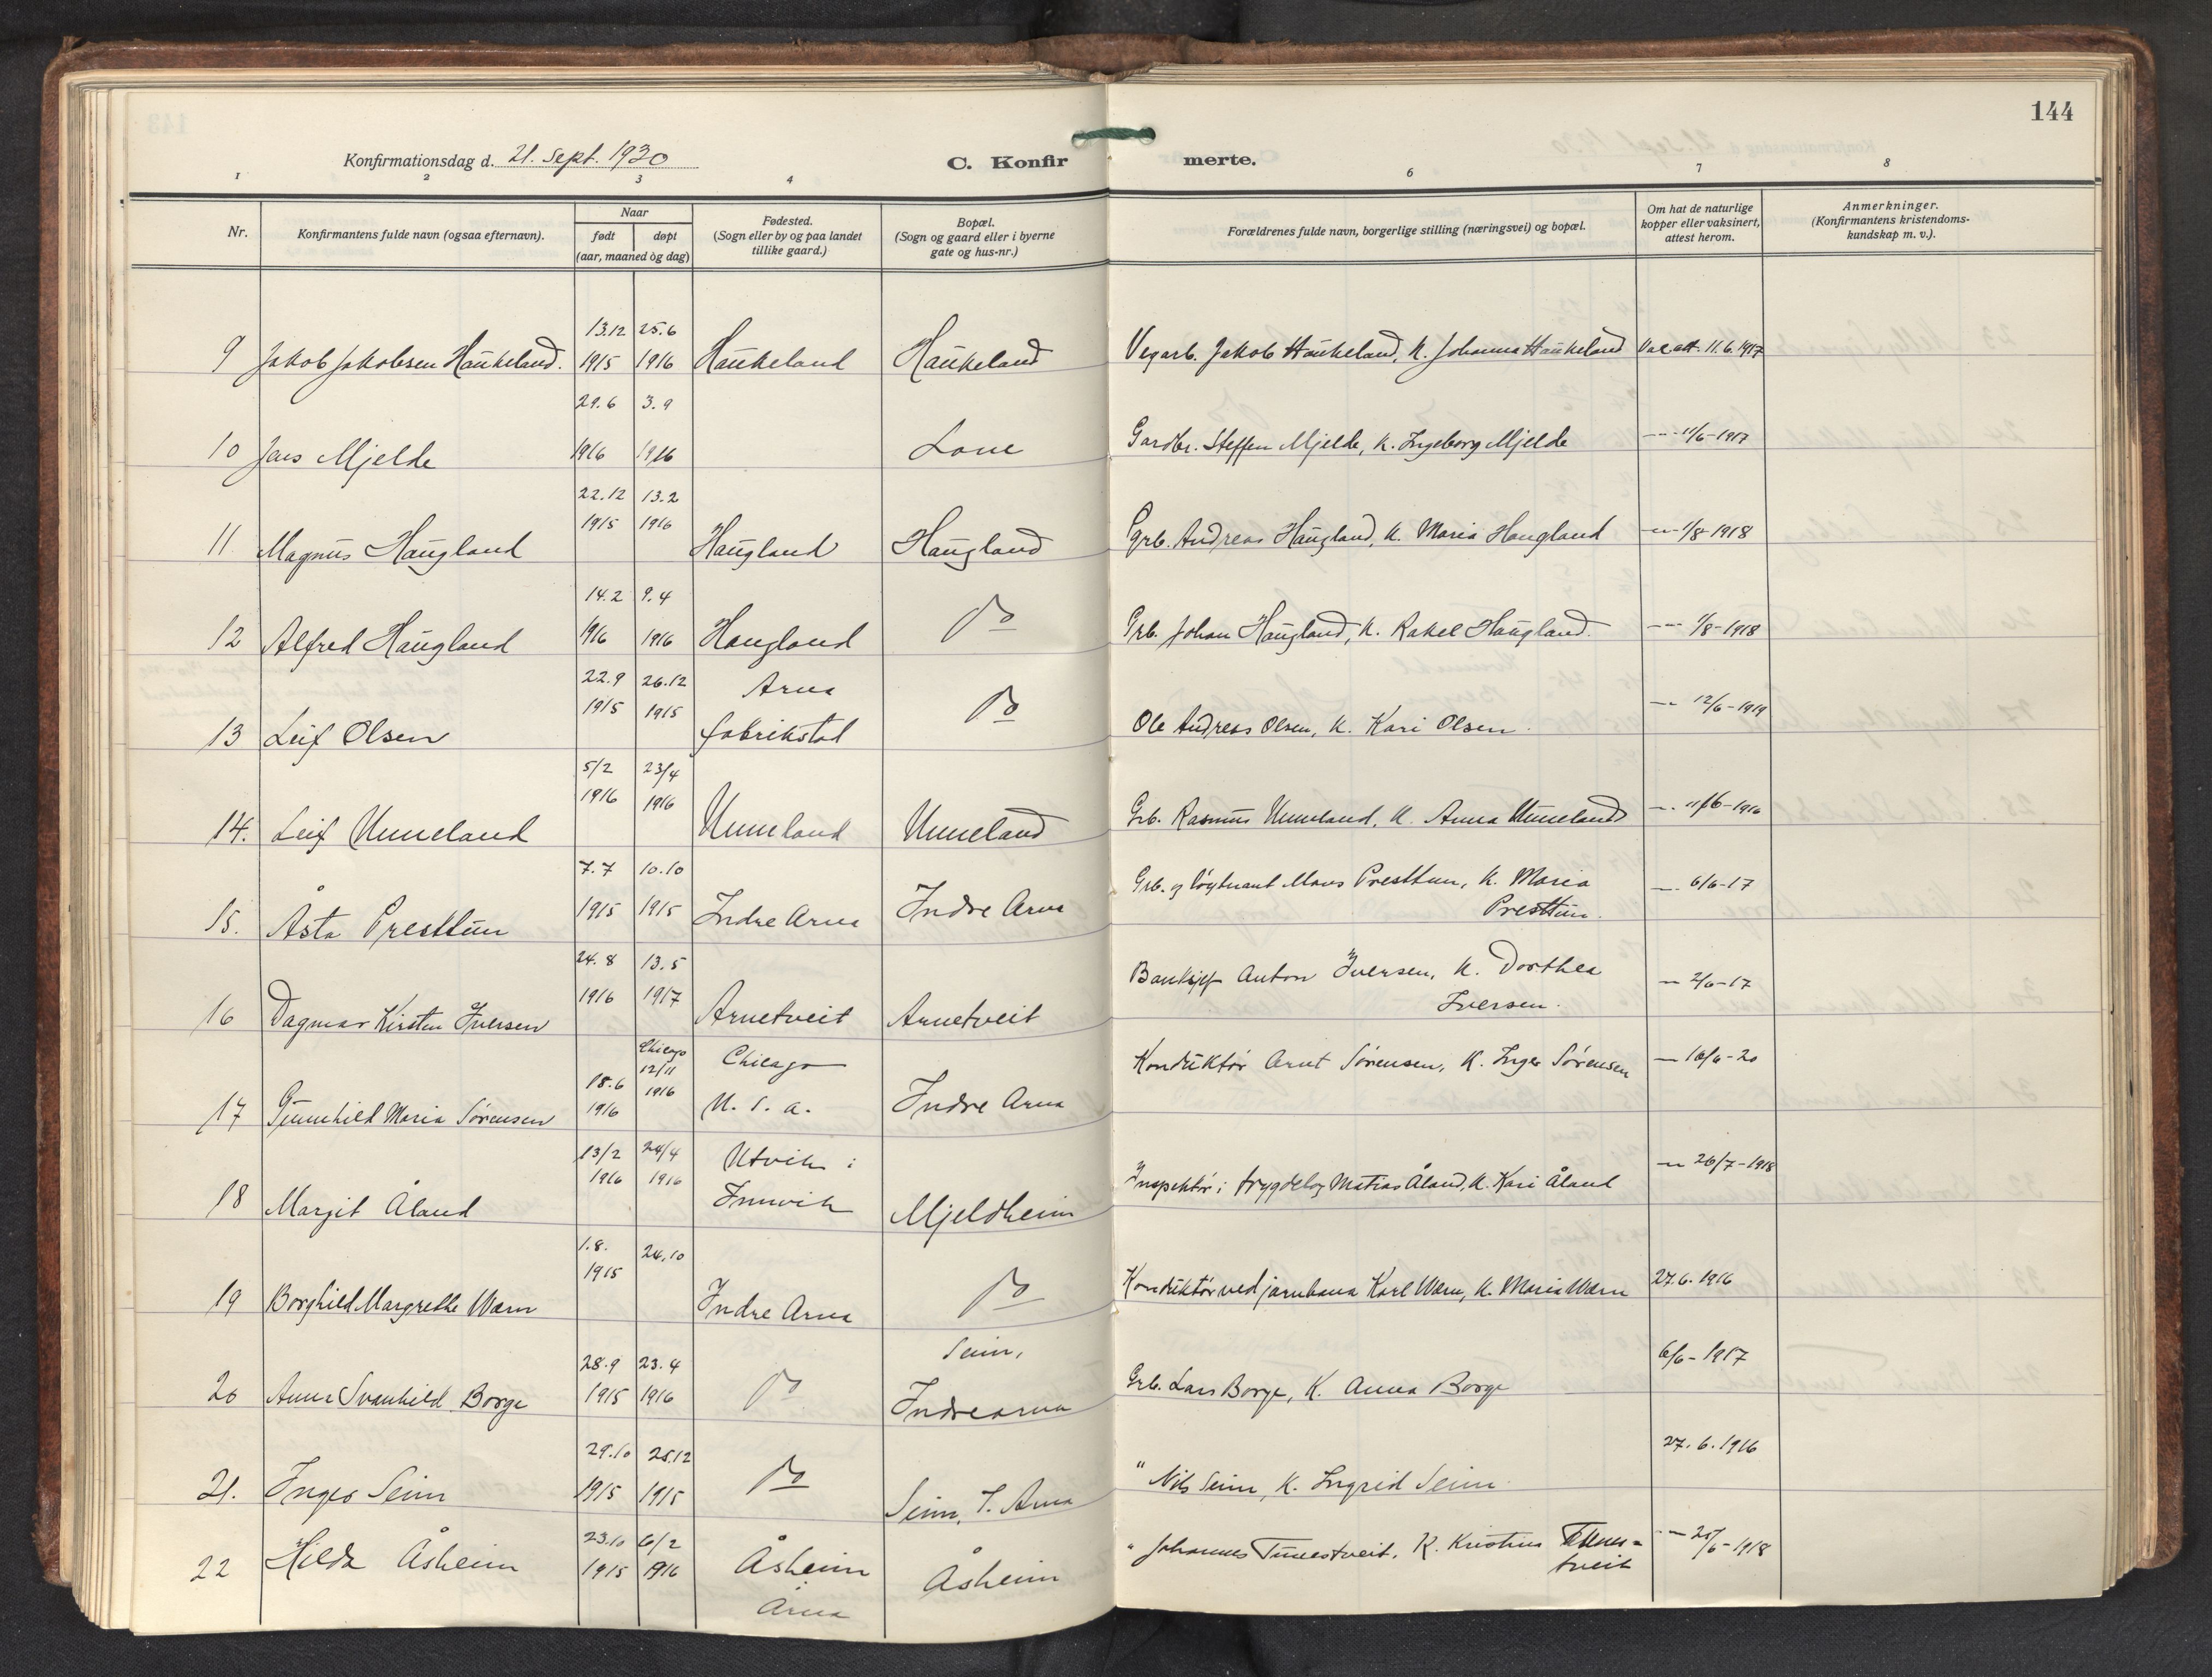 144
Konfirmationsdag d. 21. Sept. 1930
C. Konfirmerte.
1 2 3 4 6 7 8
Nr.
Konfirmantens fulde navn (ogsaa efternavn).
Naar
født døpt
(aar, maaned og dag)
Fødested.
(Sogn eller by og paa landet
tillike gaard.)
Bopæl.
(Sogn og gaard eller i byerne
gate og hus-nr.)
Forældrenes fulde navn, borgerlige stilling (næringsvei) og bopæl.
Om hat de naturlige
kopper eller vaksinert,
attest herom.
Anmerkninger.
(Konfirmantens kristendoms-
kundskap m. v.).
13.12 25.6
9 Jakob Jakobsen Haukeland. 1915 1916 Haukeland Haukeland Vegarb. Jakob Haukeland, K. Johanna Haukeland Vac.att. 11.6.1917
29.6 3.9
10 Jens Mjelde 1916 1916 Lone Gardbr. Steffen Mjelde, K. Ingeborg Mjelde — 11/6-1917
22.12 13.2
1915 1916
11 Magnus Haugland Haugland Haugland Grb. Andreas Haugland, K. Maria Haugland — 1/8-1918
14.2 9.4
12 Alfred Haugland 1916 1916 Haugland Do Grb. Johan Haugland, K. Rakel Haugland. — 1/8-1918
22.9 26.12 Arna
1915 1915
13 Leif Olsen fabrikstad Do Ole Andreas Olsen, K. Kari Olsen. — 12/6-1919
5/2 23/4
1916 1916
14. Leif Unneland Unneland Unneland Grb. Rasmus Unneland, K. Anna Unneland — 11/6-1916
7.7 10.10
15. Åsta Presttun 1915 1915 Indre Arna Indre Arna Grb. og løytnant Mons Presttun, K. Maria — 6/6-17
Presttun.
24.8 13.5
16 Dagmar Kirsten Iversen 1916 1917 Arnetveit Arnetveit Anton Iversen, K. Dorthea — 2/6-17
Iversen.
Chicago
18.6 12/11 Chicago
17 Gunnhild Maria Sørensen 1916 1916 U. S. A. Indre Arna Konduktør Arnt Sørensen, K. Inger Sørensen — 16/6-20
13/2 24/4 Utvik i
1916 1916
18 Margit Åland Innvik Mjeldheim Inspektør i trygdelag Matias Åland, K. Kari Åland — 26/7-1918
1.8. 24.10
1915
19 Borghild Margrethe Wærn Indre Arna Do Konduktør ved jarnbana Karl Wærn, K. Maria Wærn 27.6.1916
28.9 23.4 Seim,
20 Anna Svanhild Borge 1915 1916 Do Indrearna Grb. Lars Borge, K. Anna Borge 6/6-1917
29.10 25.12
21. Inger Seim 1915 1915 Do Seim, I. Arna " Nils Seim, K. Ingrid Seim. 27.6.1916
23.10 6/2
22 Hilda Åsheim 1915 1916 Åsheim Åsheim " Johannes Tunestveit, K. Kristine Tunes= — 25/6-1918
Arna tveit